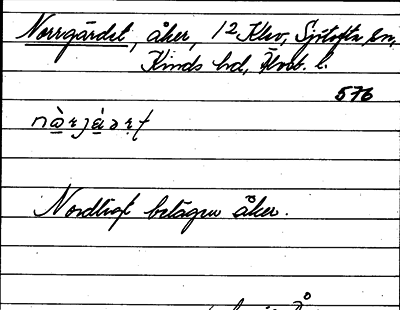 Norrgärdet, åker, 12 Klev, Sjötofta sn,
Kinds hd, Älvsb. l.
576
Nordligt belägen åker.